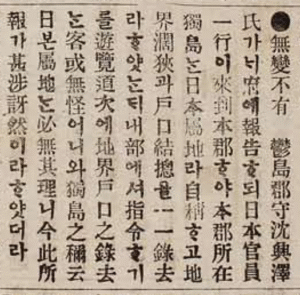 ●無變不有 鬱島郡守沈興澤
氏가ᄂᆡ府에報告ᄒᆞ되日本官員
一行이來到本郡ᄒᆞ야本郡所在
獨島ᄂᆞᆫ日本屬地라自稱ᄒᆞ고地
界濶狹과戶口結摠을一一錄去
라ᄒᆞ얏ᄂᆞᆫᄃᆡ內部에셔指令ᄒᆞ기
를遊覽道次에地界戶口之錄去
ᄂᆞᆫ容或無怪어니와獨島之稱云
日本屬地ᄂᆞᆫ必無其理니今此所
報가甚涉訝然이라ᄒᆞ얏더라